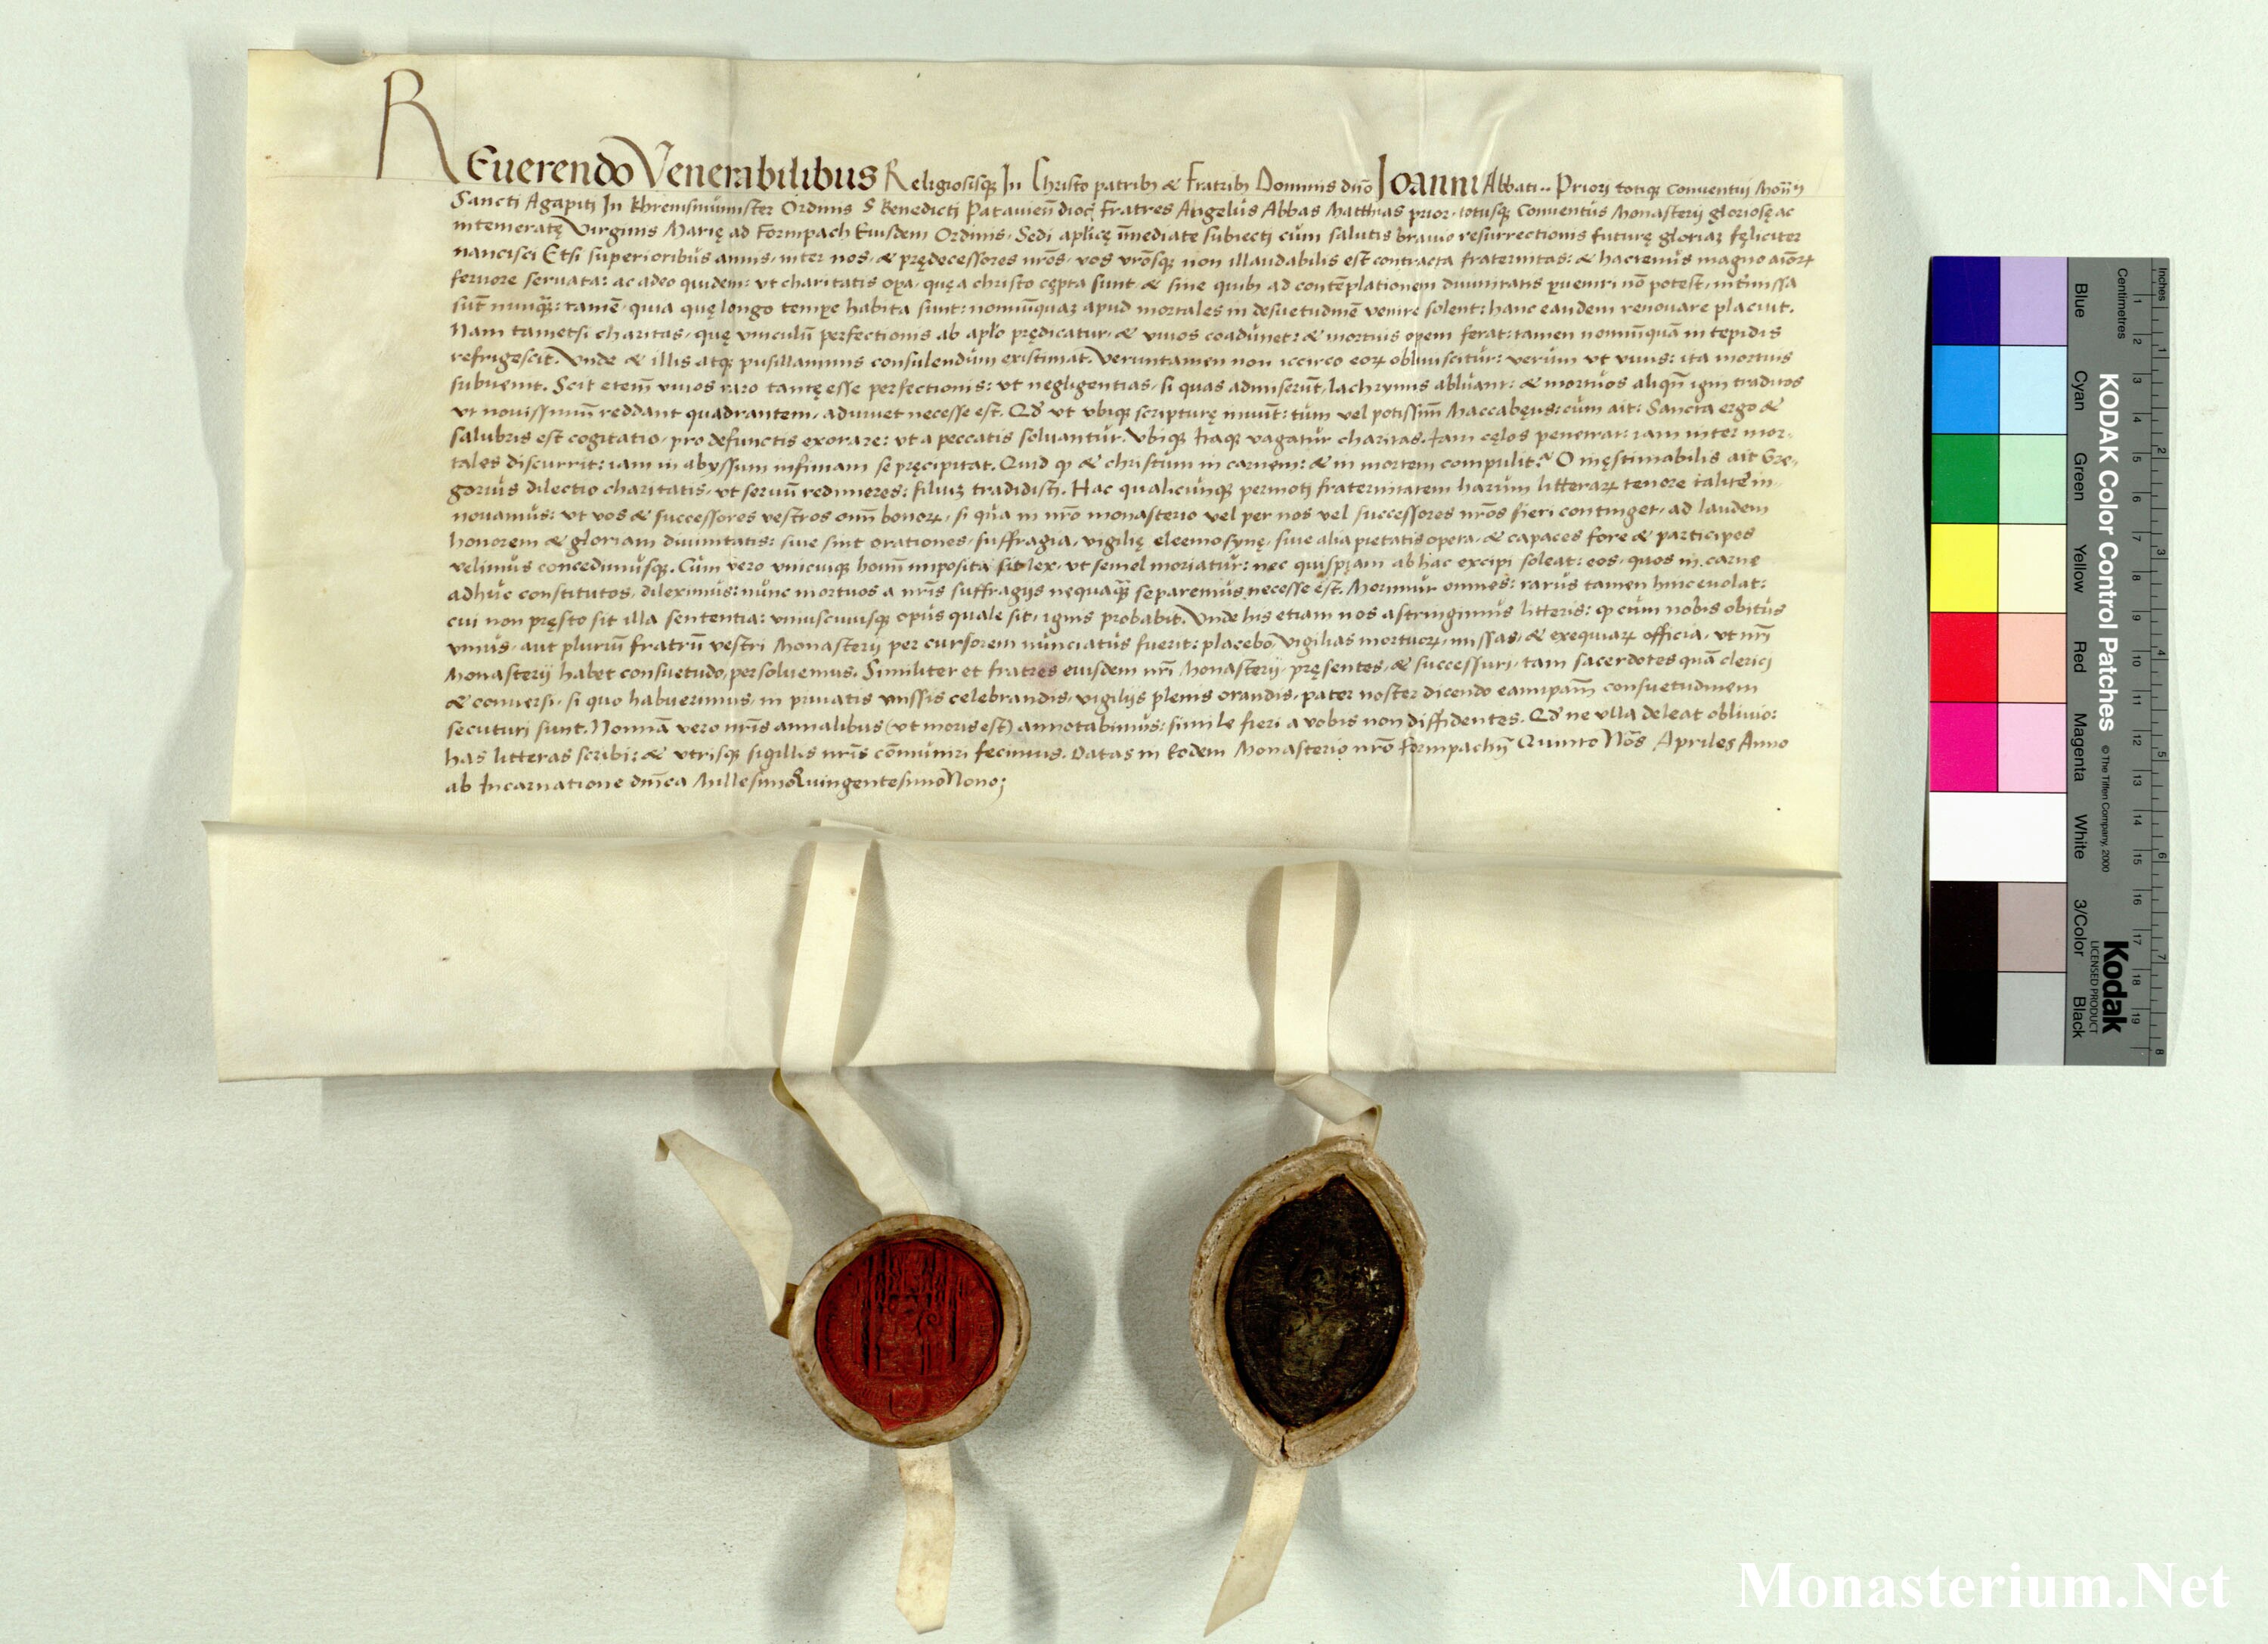 REuerendo Venerabilibus Religiosisq; In Christo patribꝫ & Fratribꝫ Dominis dño Ioanni Abbati.. Priori totiq; Conuentui Moñrij
Sancti Agapiti In Khremsmünster Ordinis S Benedicti Patauieñ dioc̄ Fratres Angelus Abbas Matthias prior, totusq; Conuentus Monasterij gloriosę ac
intemeratę Virginis Marię ad Formpach Eiusdem Ordinis, Sedi aplicę ĩmediate subiecti cum salutis brauio resurrectionis futurę gloriaꝫ fęliciter
nancisci Etsi superioribus annis, inter nos, & prędecessores nr̃os, vos vr̃osq; non illaudabilis est contracta fraternitas: & hactenus magno aĩoꝝ
feruore seruata: ac adeo quidem: vt charitatis oꝑa, quę a christo cępta sunt & sine quibꝫ ad contẽplationem diuinitatis ꝑueniri nõ potest, intimissa
sũt nunq̃ꝫ: tamẽ, quia quę longo tempe habita sunt: nonnũquaꝫ apud mortales in desuetudinẽ venire solent: hanc eandem renouare placuit.
Nam tametsi charitas, quę vinculũ perfectionis ab aplo prędicatur, & viuos coadunet: & mortuis opem ferat: tamen nonnũquã in tepidis
refrigescit. Vnde & illis atq; pusillanimis consulendum existimat. Veruntamen non iccirco eoꝝ obliuiscitur: verum vt viuis: ita mortuis
subuenit. Scit etenĩ viuos raro tantę esse perfectionis: vt negligentias, si quas admiserũt, lachrymis abluant: & mortuos aliqñ igni traditos
vt nouissimum reddant quadrantem, adiuuet necesse est. Qd̃ vt vbiq; scripturę innuũt: tum vel potissim̃ Maccabęus: cum ait: Sancta ergo &
salubris est cogitatio, pro defunctis exorare: vt a peccatis soluantur. Vbiq; itaq; vagatur charitas. Iam cęlos penetrat: iam inter mor-
tales discurrit: iam in abyssum infimam se pręcipitat. Quid ꝙ & christum in carnem: & in mortem compulit? O inęstimabilis ait Gre-
gorius dilectio charitatis, vt seruũ redimeres: filiuꝫ tradidisti. Hac qualicunq; permoti fraternitatem harum litteraꝝ tenore taliter in-
nouamus: vt vos & successores vestros omñ bonoꝝ, si qua in nr̃o monasterio vel per nos vel successores nr̃os fieri continget, ad laudem
honorem & gloriam diuinitatis: siue sint orationes, suffragia, vigilię elcemosynę, siue alia pietatis opera, & capaces fore & participes
velimus concedimusq;. Cum vero vnicuiq; homĩ imposita sit lex, vt semel moriatur: nec quispiam ab hac excipi soleat: eos, quos in carne
adhuc constitutos, dileximus: nunc mortuos a nr̃is suffragijs nequaq̃ꝫ separemus necesse est. Morimur omnes: rarus tamen hinc euolat:
cui non pręsto sit illa sententia: vniuscuiusq; opus quale sit, ignis probabit. Vnde his etiam nos astringimus litteris: ꝙ cum nobis obitus
vnius, aut plurium fratrũ vestri Monasterij per cursorem nunciatus fuerit: placebo, vigilias mortuoꝝ, missas, & exequiaꝝ officia, vt nr̃i
Monasterij habet consuetudo, persoluemus. Similiter et fratres eiusdem nr̃i Monasterij, pręsentes, & successuri, tam sacerdotes quã clerici
& conuersi, si quo habuerimus, in priuatis missis celebrandis, vigilijs plenis orandis, pater noster dicendo eampãm consuetudinem
secuturi sunt. Nomĩa vero nr̃is annalibus (vt moris est) annotabimus: simile fieri a vobis non diffidentes. Qd̃ ne vlla deleat obliuio:
has litteras scribi: & vtrisq; sigillis nr̃is cõmuniri fecimus. Datas in Eodem Monasterio nr̃o Formpachñ Quinto Nõs Apriles Anno
ab Incarnatione dñica MillesimoQuingentesimoNono;
KODAK Color Control Patches
© The Tiffen Company, 2000
Kodak
LICENSED PRODUCT
Blue Cyan Green Yellow Red Magenta White 3/Color Black
Inches
1 2 3 4 5 6 7 8
Centimetres
1 2 3 4 5 6 7 8 9 10 11 12 13 14 15 16 17 18 19
Monasterium.Net